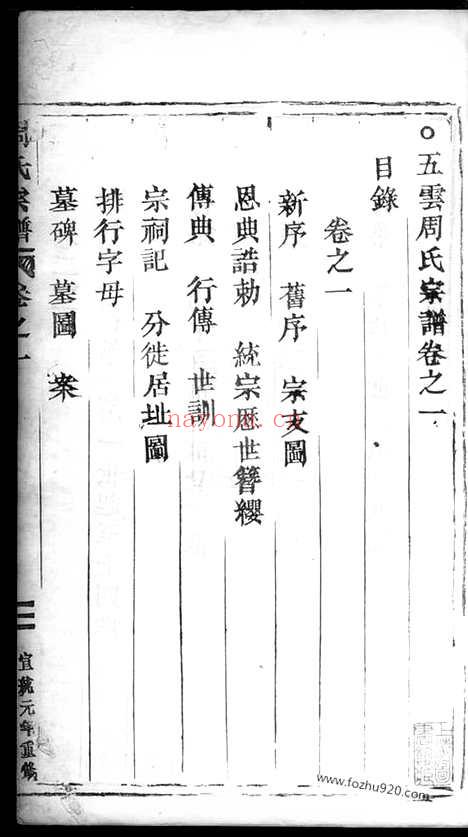 五雲周氏宗譜卷之一
目錄
卷之一
新序 舊序 宗支圖
恩典誥勅 統宗歷世簪纓
傳典 行傳 世訓
宗祠記 分徙居址圖
排行字母
墓碑 墓圖 案
周氏宗譜 卷之一
宣統元年重修
nayong.cn
www.fozhu920.com